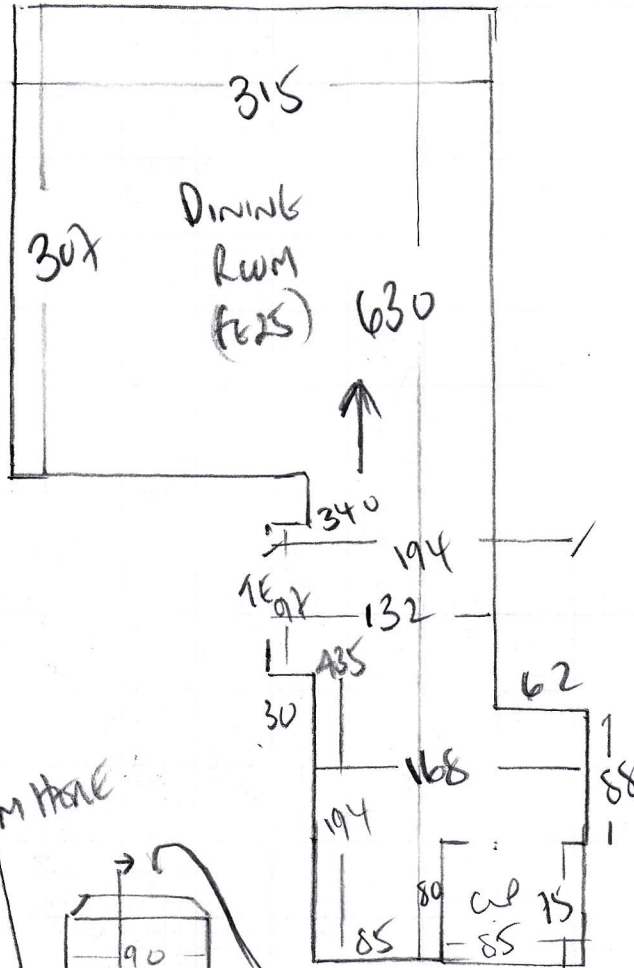 315
307
DINING
ROOM
(FE25)
630
340
194
TE
97
132
435
62
30
168
88
194
80
CUP
75
85
85
90